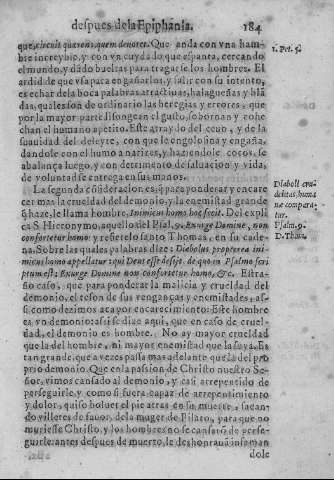 despues de la Epiphania. 184
que, circuit quærens, quem deuoret. Que anda con vna ham-
bre increyble, y con vn cuydado que espanta, cercando
el mundo, y dādo bueltas para tragarse los hombres. El
ardid de que vsa para engañarlos, y salir con su intento,
es echar de la boca palabras atractiuas, halagueñas y blā
das, quales son de ordinario las heregias y errores, que
por la mayor parte lisongean el gusto, sobornan y cohe
chan el humano apetito. Este atrayelo del ceuo, y de la
suauidad del deleyte, con que le engolosina y engaña,
dandole con el humo a narizes, y haziendole cocos, se
abalança luego, y con detrimento de salud y vida,
de voluntad se entrega en sus manos.
La segunda cōsideracion es, q̄ para ponderar y encare
cer mas la crueldad del demonio, y la enemistad grande
q̄ haze, le llama hombre, Inimicus homo hoc fecit. Del expli
ca S. Hieronymo, aquello del Psal. 9. Exurge Domine, non
confortetur homo: y refierelo santo Thomas, en su cade-
na. Sobre las quales palabras dize: Diabolus propterea ini-
micus homo appellatur, quia Deus esse desijt. de quo in Psalmo scri
ptum est; Exurge Domine non confortetur homo, &c. Estra-
ño caso, que para ponderar la malicia y crueldad del
demonio, el teson de sus venganças y enemistades, as-
si como dezimos aca por encarecimiento: Este hombre
es vn demonio: assi se dize aqui, que en caso de cruel-
dad, el demonio es hombre. No ay mayor crueldad
que la del hombre, ni mayor enemistad que la suya. Es
tan grande, que a vezes passa mas adelante que la del pro
prio demonio. Que en la passion de Christo nuestro Se-
ñor, vimos cansado al demonio, y casi arrepentido de
perseguirle, y como si fuera capaz de arrepentimiento
y dolor, quiso boluer el pie atras en su muerte, sacan-
do villetes de fauor, de la muger de Pilato, para que no
muriesse Christo, y los hombres no se cansarō de perse-
guirle: antes despues de muerto, le deshonrauā infaman
dole
1. Pet. 5.
Diaboli cru-
delitas, huma
ne compara-
tur.
Psalm. 9.
D. Thom.